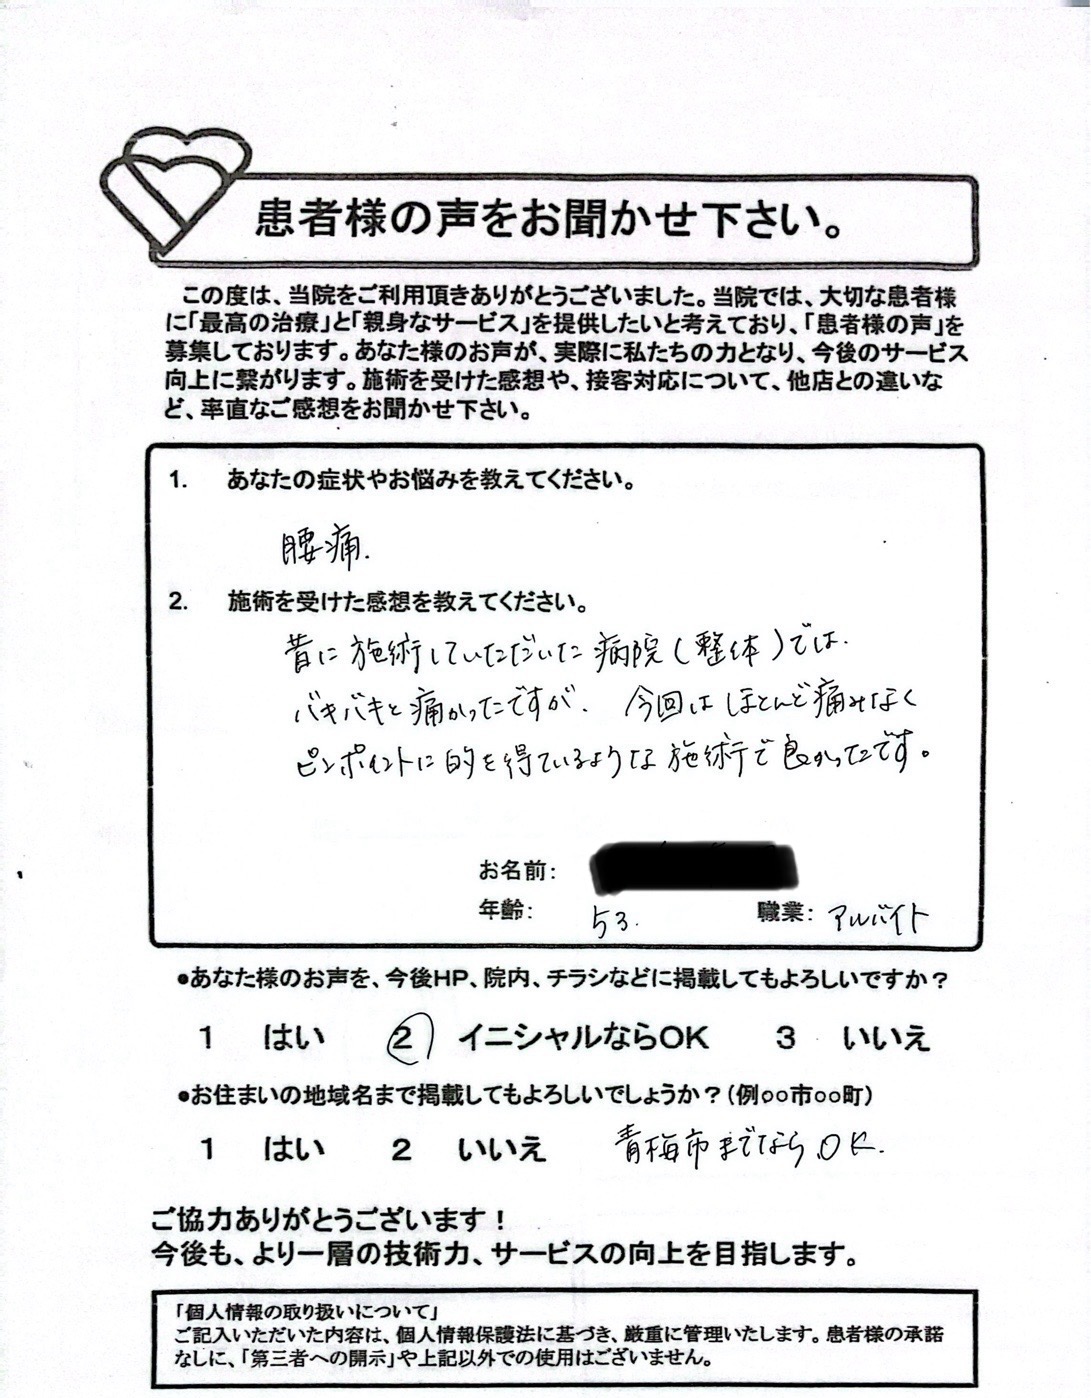 患者様の声をお聞かせ下さい。
この度は、当院をご利用頂きありがとうございました。当院では、大切な患者様
に「最高の治療」と「親身なサービス」を提供したいと考えており、「患者様の声」を
募集しております。あなた様のお声が、実際に私たちの力となり、今後のサービス
向上に繋がります。施術を受けた感想や、接客対応について、他店との違いな
ど、率直なご感想をお聞かせ下さい。
1. あなたの症状やお悩みを教えてください。
腰痛.
2. 施術を受けた感想を教えてください。
昔に施術していただいた病院(整体)では、
バキバキと痛かったですが、今回はほとんど痛みなく
ピンポイントに的を得ているような施術で良かったです。
お名前:
年齢: 53. 職業: アルバイト
●あなた様のお声を、今後HP、院内、チラシなどに掲載してもよろしいですか?
1 はい 2 イニシャルならOK 3 いいえ
●お住まいの地域名まで掲載してもよろしいでしょうか?(例○○市○○町)
1 はい 2 いいえ 青梅市までならOK.
ご協力ありがとうございます!
今後も、より一層の技術力、サービスの向上を目指します。
「個人情報の取り扱いについて」
ご記入いただいた内容は、個人情報保護法に基づき、厳重に管理いたします。患者様の承諾
なしに、「第三者への開示」や上記以外での使用はございません。